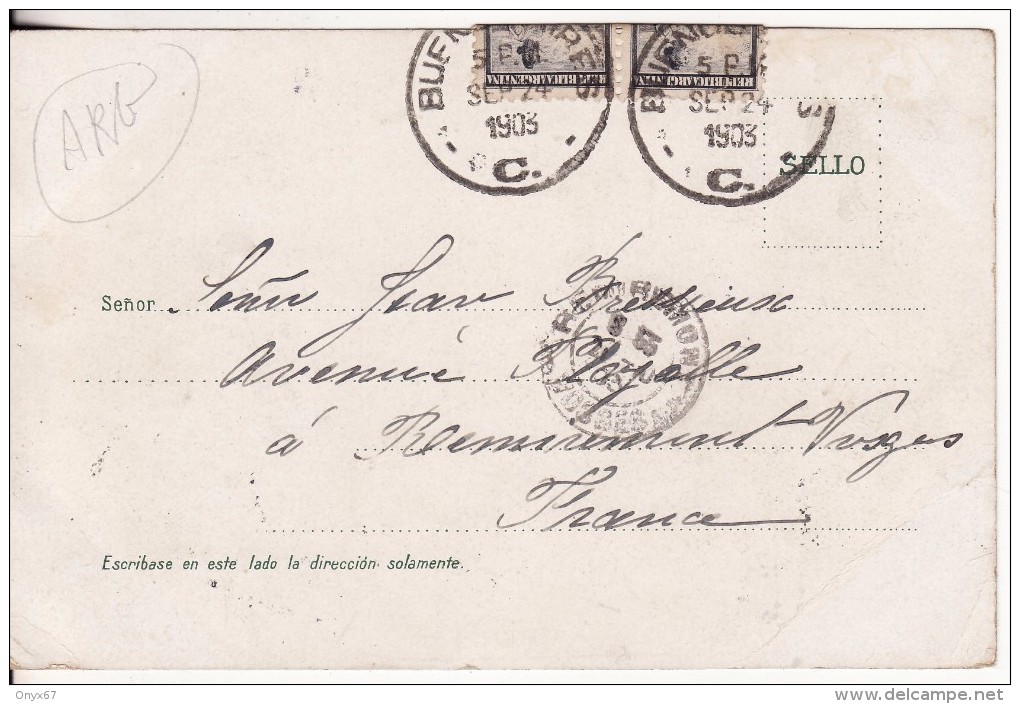 ARG
BUENOS AIRES
5 P.M.
SEP 24
1903
C.
REPUBLICA ARGENTINA
BUENOS AIRES
5 P.M.
SEP 24
1903
C.
REPUBLICA ARGENTINA
SELLO
Señor
Señor Jean
Avenue
REMIREMONT
à Remiremont Vosges
France
Escríbase en este lado la dirección solamente.
Onyx67
www.delcampe.net